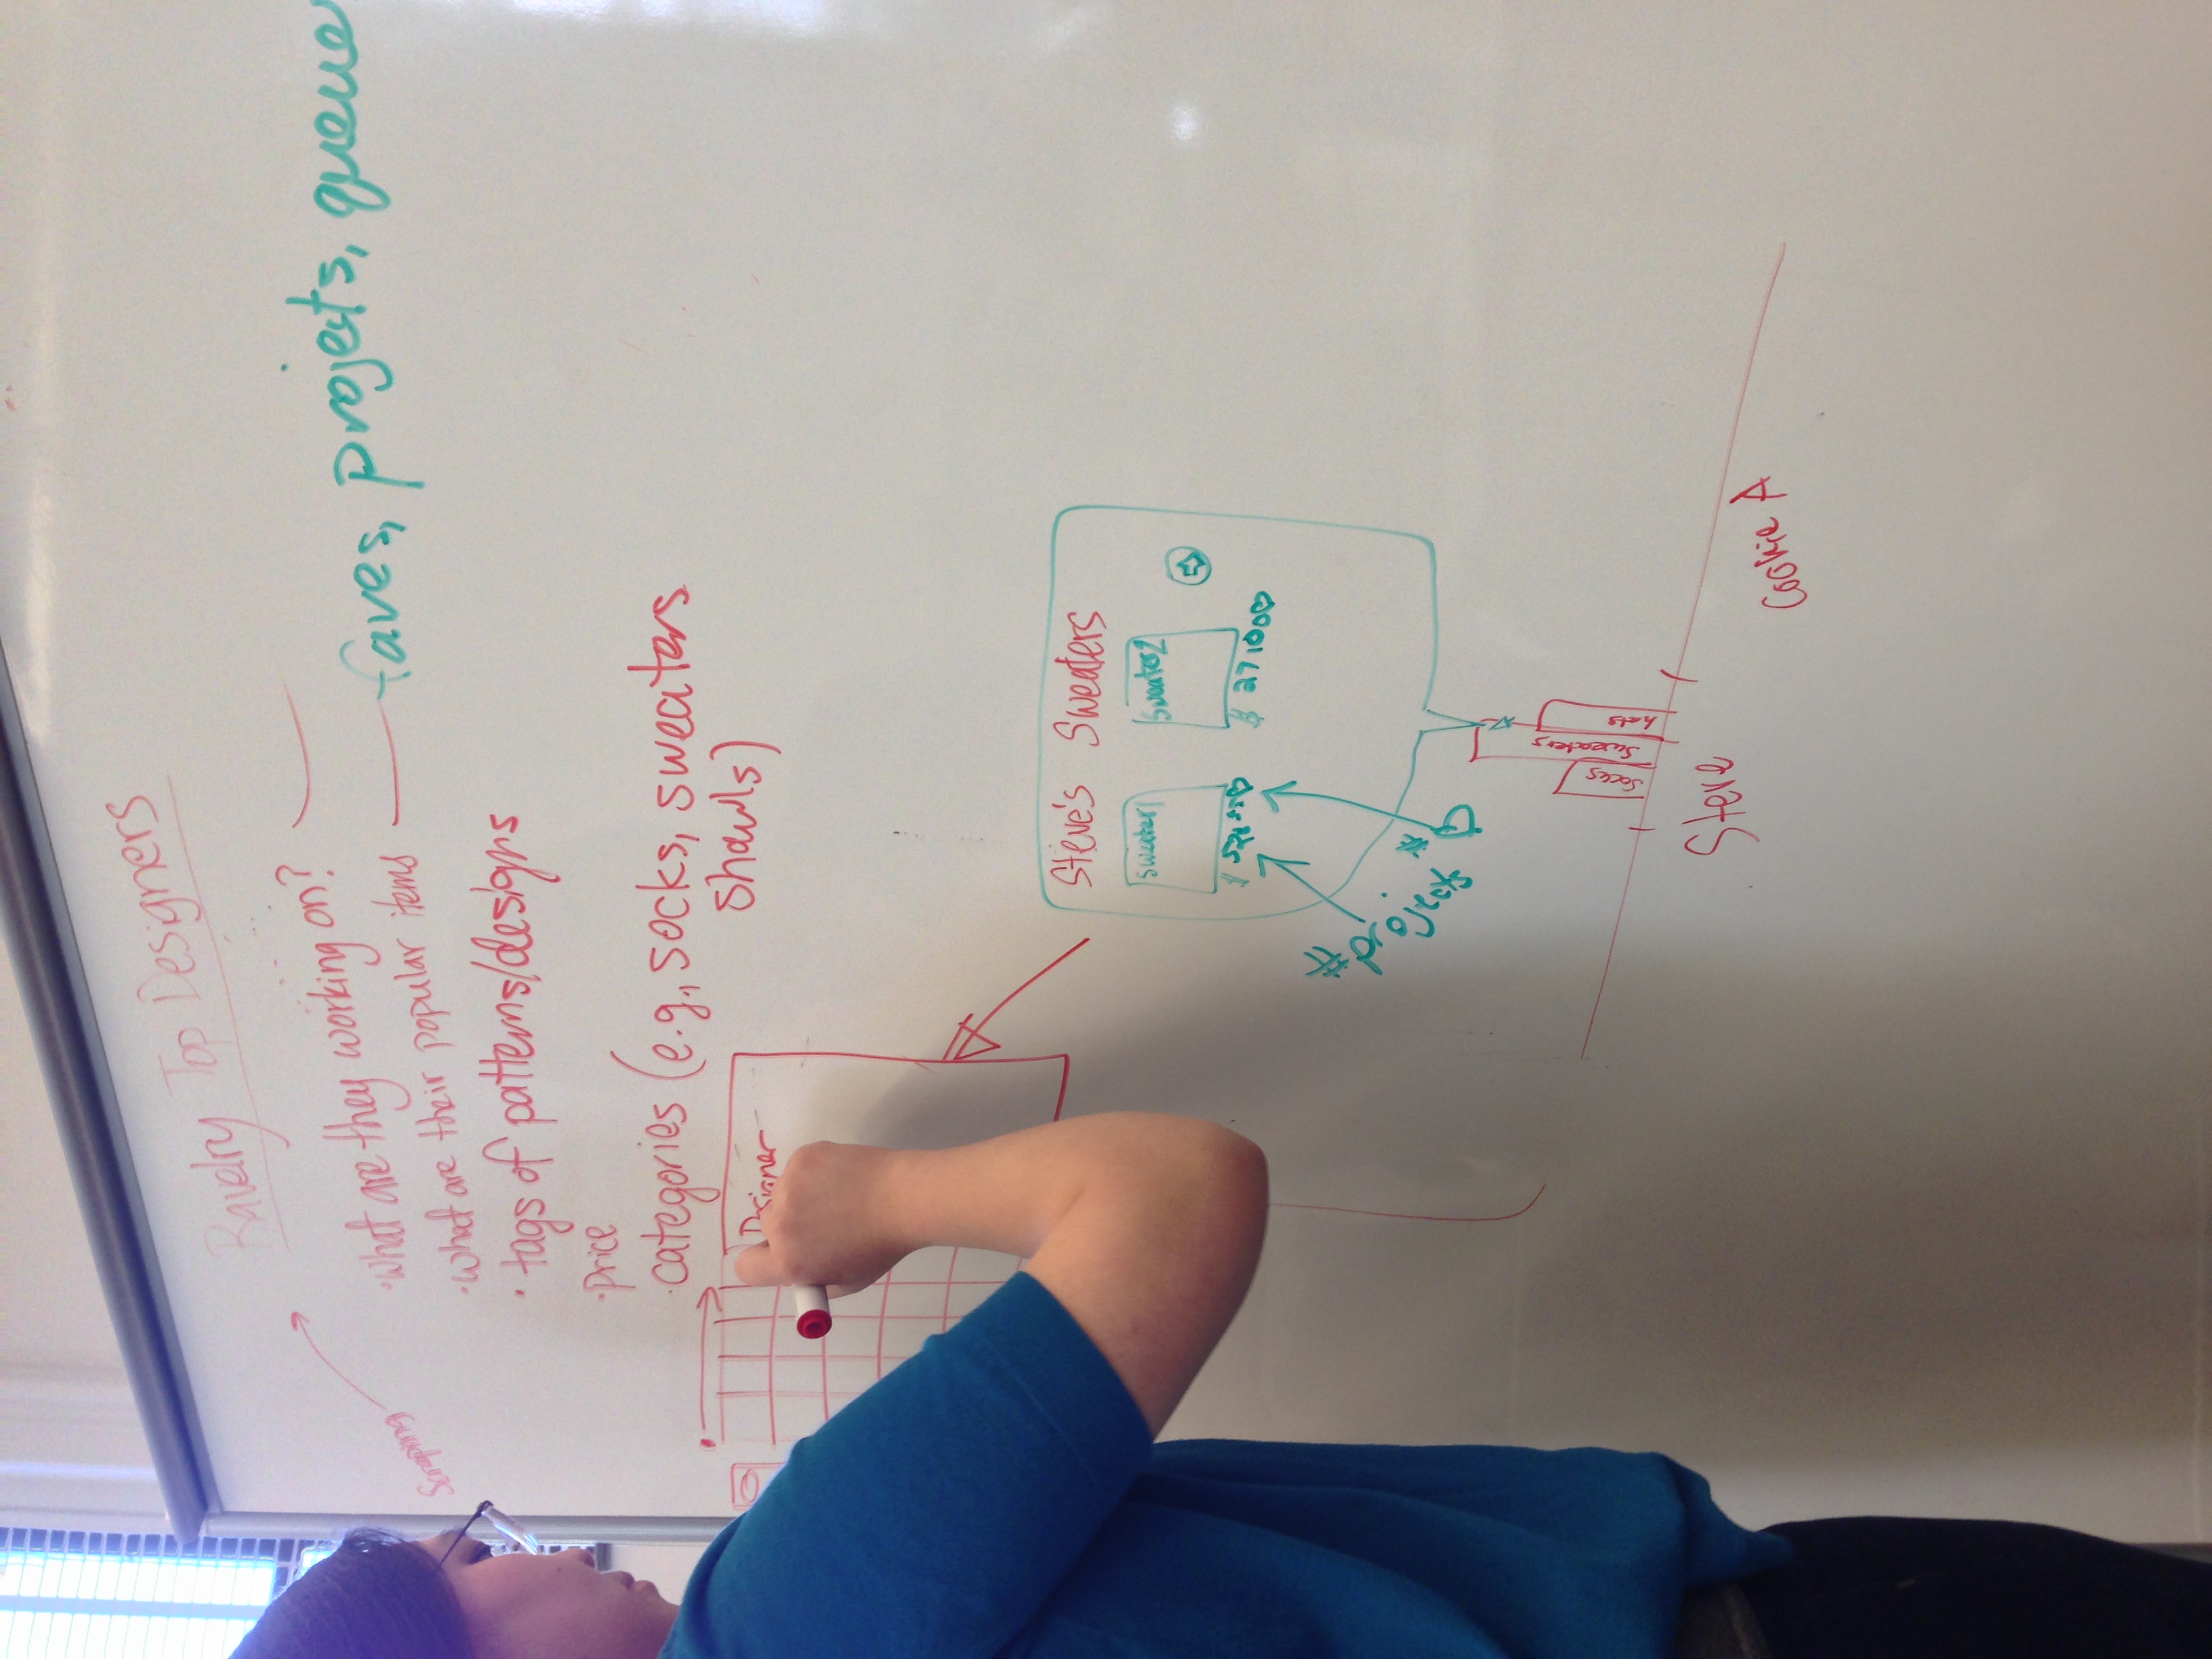 Ravelry Top Designers
Scraping
·What are they working on?
·What are their popular items
faves, projects, queue
·tags of patterns/designs
·price
·categories (e.g., socks, sweaters
shawls)
Designer
Steve's Sweaters
Sweater1
Sweater2
$
$ 27 100♡
# projects
# ♡
Socks
Sweaters
hats
Steve
Cookie A